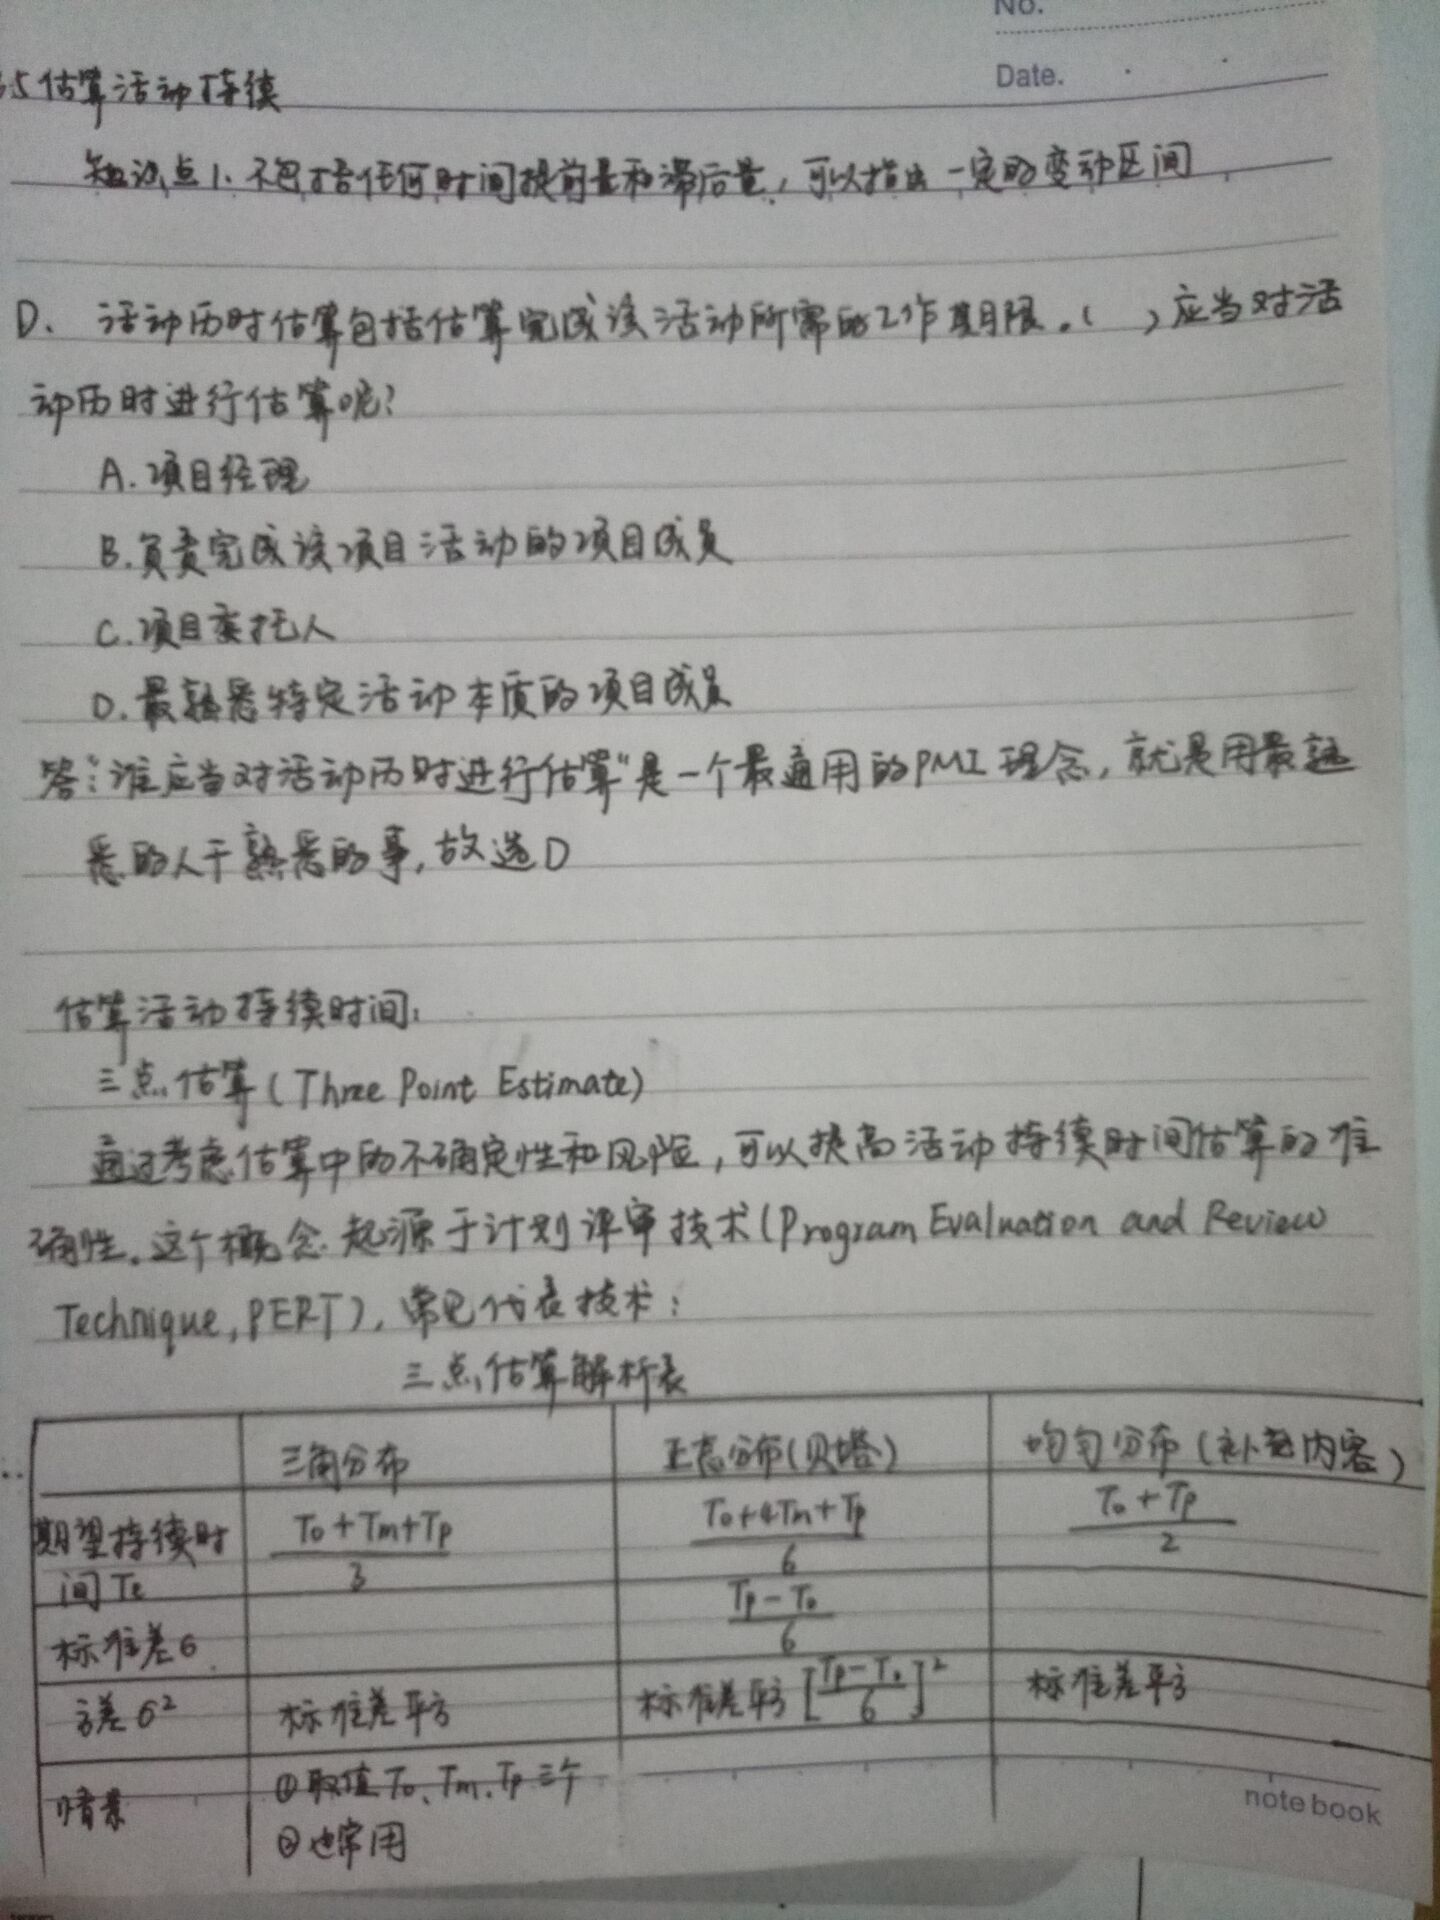 No.
Date.
5估算活动持续
知识点1.不包括任何时间提前量和滞后量,可以指出一定的变动区间
D、活动历时估算包括估算完成该活动所需的工作期限。( )应当对活
动历时进行估算呢?
A.项目经理
B.负责完成该项目活动的项目成员
C.项目委托人
D.最熟悉特定活动本质的项目成员
答:"谁应当对活动历时进行估算"是一个最通用的PMI理念,就是用最熟
悉的人干熟悉的事,故选D
估算活动持续时间:
三点估算(Three Point Estimate)
通过考虑估算中的不确定性和风险,可以提高活动持续时间估算的准
确性。这个概念起源于计划评审技术(Program Evaluation and Review
Technique,PERT),常见代表技术:
三点估算解析表
三角分布 正态分布(贝塔) 均匀分布(补充内容)
期望持续时间Te (To+Tm+Tp)/3 (To+4Tm+Tp)/6 (To+Tp)/2
标准差σ (Tp-To)/6
方差σ² 标准差平方 标准差平方[(Tp-To)/6]² 标准差平方
情景 ①取值To、Tm、Tp三个
②也常用
note book